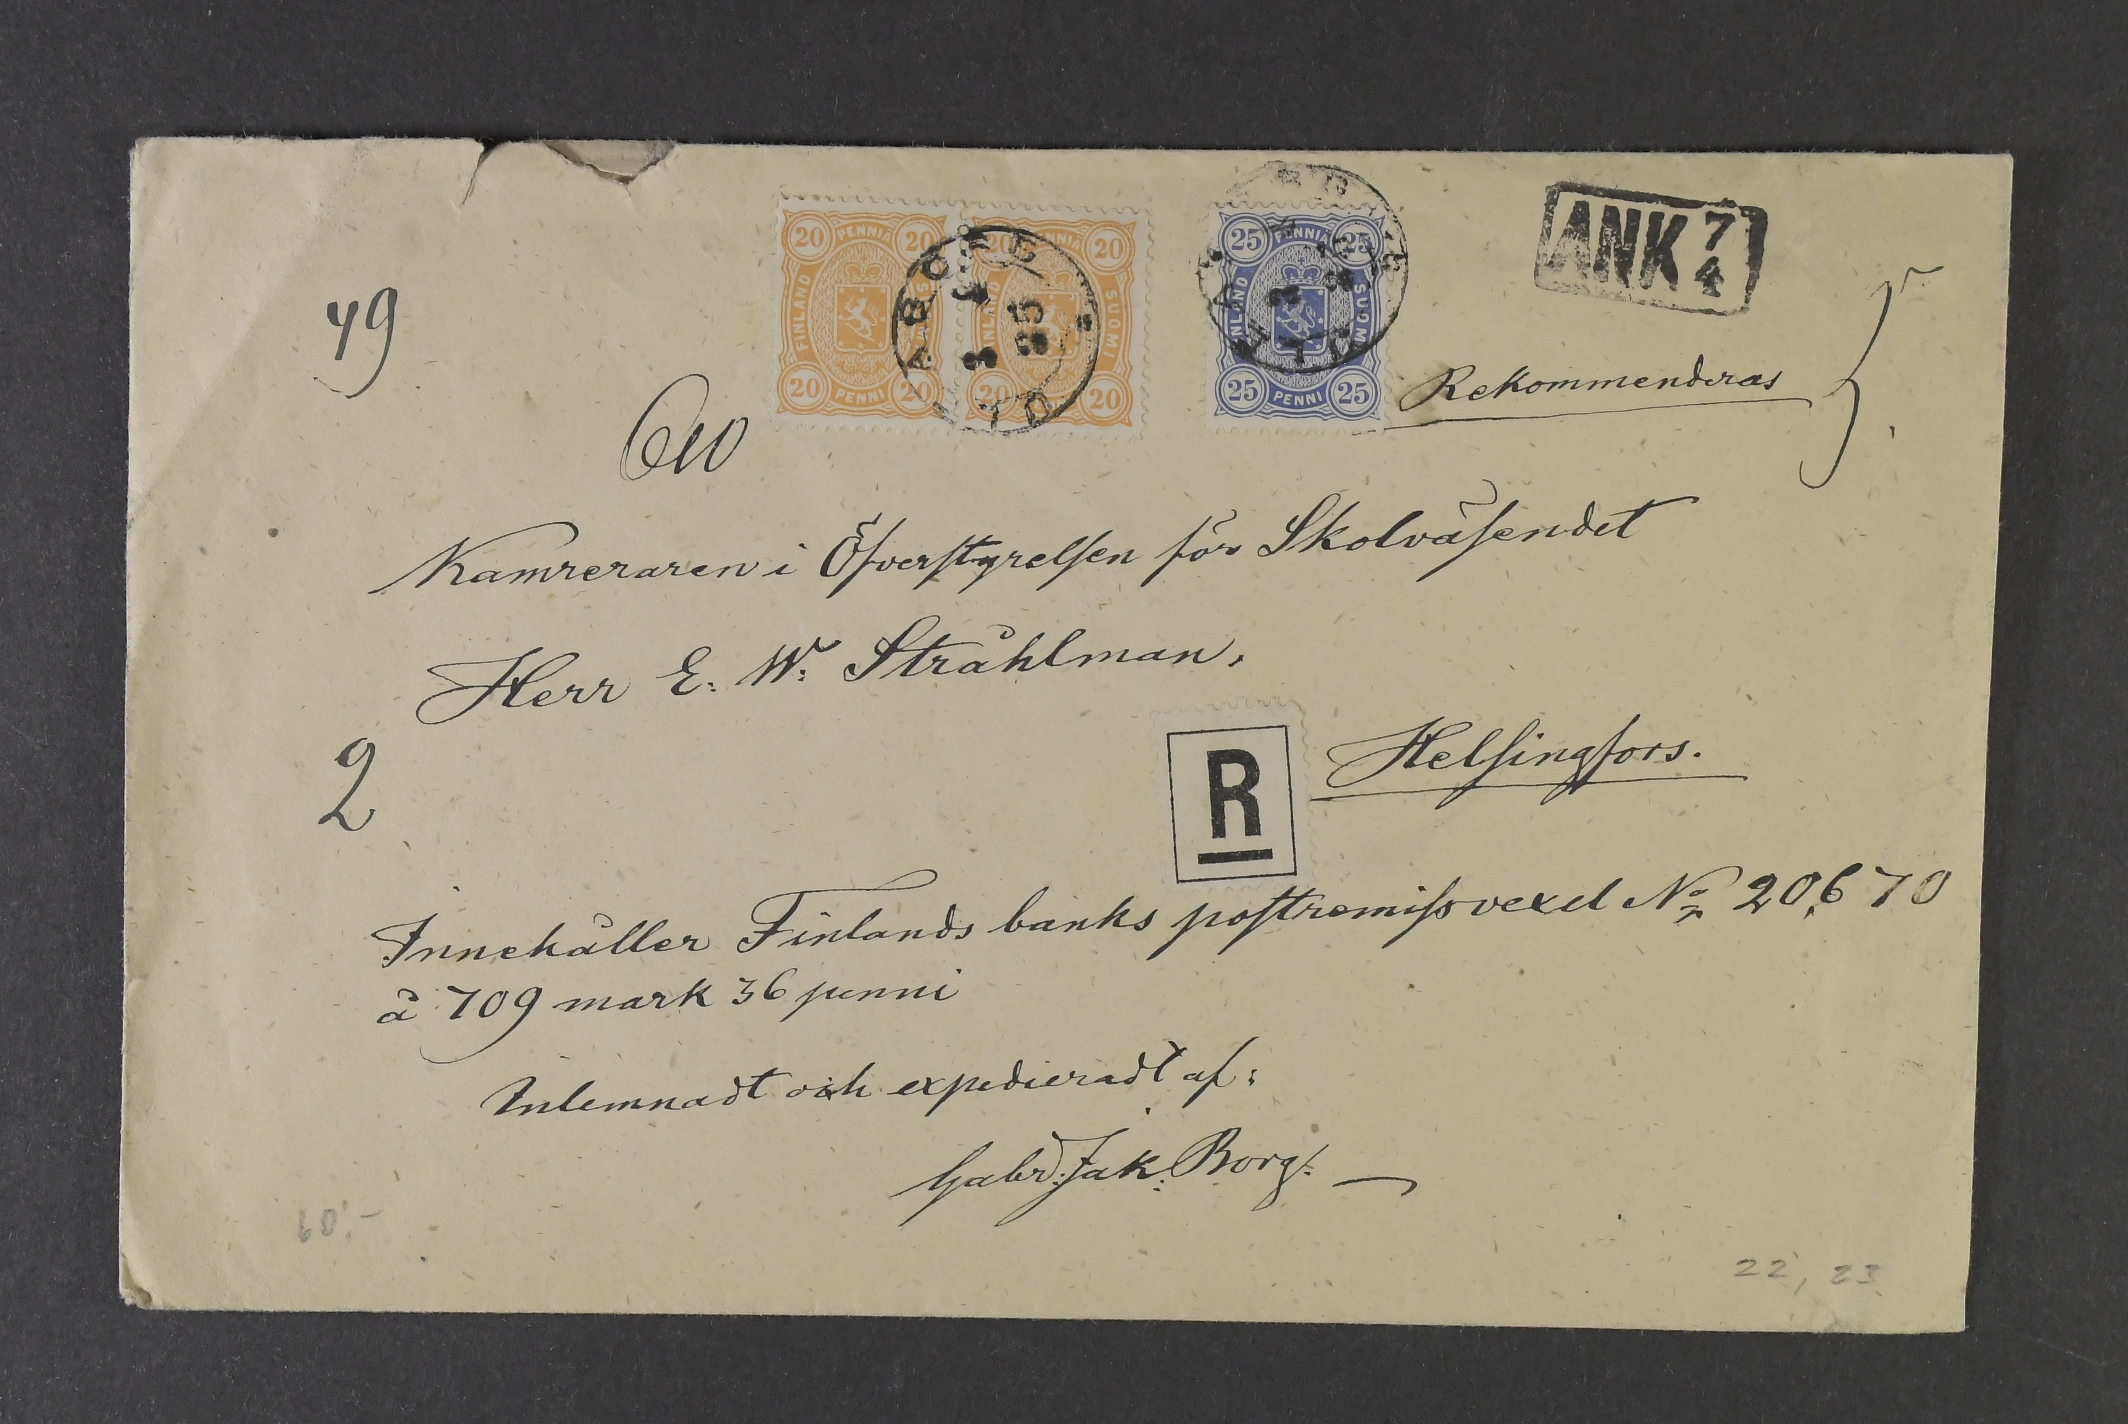 ANK 7/4
49
20 PENNIÄ 20
20 PENNI 20
20 PENNIÄ 20
FINLAND SUOMI
20 20
25 PENNIÄ 25
FINLAND SUOMI
25 PENNI 25
Rekommenderas
Kamreraren i Öfverstyrelsen för Skolväsendet
Herr E. W. Stråhlman.
R
Helsingfors.
2
Innehåller Finlands banks postremissvexel No 20,670
à 709 mark 36 penni
Inlemnadt och expedieradt af:
Gabr. Jak. Borg.
60,-
22, 23